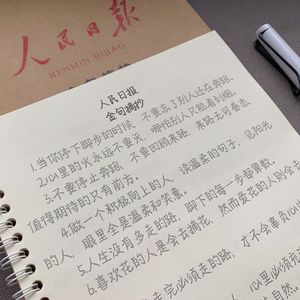 人民日报
RENMIN RIBAO
人民日报
金句摘抄
1.当你停下脚步的时候，不要忘了别人还在奔跑。
2.心里的火永远不要灭，哪怕别人只能看到烟。
3.不要停止奔跑，不要回顾来路，来路无可眷恋，
值得期待的只有前方。
4.做一个积极向上的人，读温柔的句子，见阳光
的人，眼里全是温柔和笑意。
5.人生没有多走的路，脚下的每一步都算数。
6.喜欢花的人是会去摘花，然而爱花的人则会去